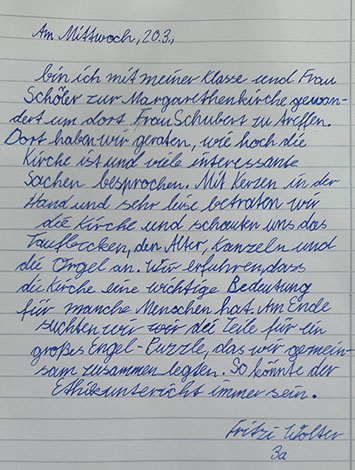 Am Mittwoch, 20.3.,
bin ich mit meiner Klasse und Frau
Schöler zur Margarethenkirche gewan-
dert um dort Frau Schubert zu treffen.
Dort haben wir geraten, wie hoch die
Kirche ist und viele interessante
Sachen besprochen. Mit Kerzen in der
Hand und sehr leise betraten wir
die Kirche und schauten uns das
Taufbecken, den Alter, Kanzeln und
die Orgel an. Wir erfuhren, dass
die Kirche eine wichtige Bedeutung
für manche Menschen hat. Am Ende
suchten wir wir die Teile für ein
großes Engel-Puzzle, das wir gemein-
sam zusammen legten. So könnte der
Ethikunterricht immer sein.
Fritzi Wolter
3a